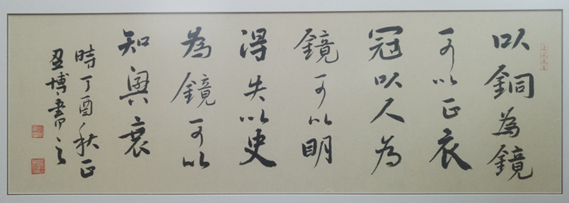 以銅為鏡
可以正衣
冠以人為
鏡可以明
得失以史
為鏡可以
知興衰
時丁酉秋正
博書之